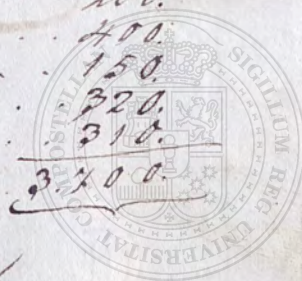 400.
150.
320.
310.
3700.
SIGILLUM REG UNIVERSITAT COMPOSTELL